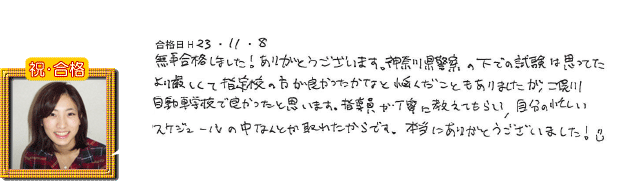 祝・合格
合格日 H 23・11・8
無事合格しました！ありがとうございます。神奈川県警察の下での試験は思ってた
より厳しくて指定校の方が良かったかなと悩んだこともありましたが二俣川
自動車学校で良かったと思います。指導員が丁寧に教えてもらい、自分の忙しい
スケジュールの中なんとか取れたからです。本当にありがとうございました！